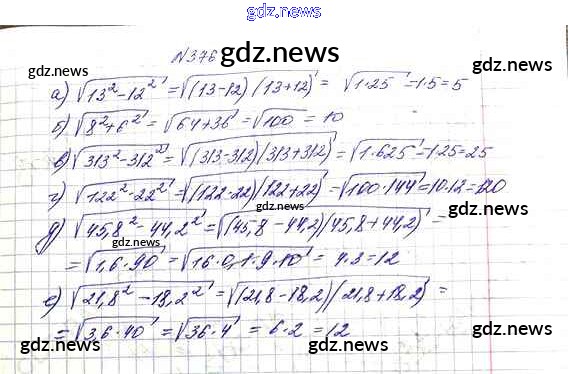 gdz.news
N376
gdz.news
gdz.news
gdz.news
а) √13²-12² = √(13-12)(13+12) = √1·25 = 1·5 = 5
б) √8²+6² = √64+36 = √100 = 10
gdz.news
gdz.news
в) √313²-312² = √(313-312)(313+312) = √1·625 = 1·25 = 25
г) √122²-22² = √(122-22)(122+22) = √100·144 = 10·12 = 120
gdz.news
д) √45,8²-44,2² = √(45,8-44,2)(45,8+44,2) =
gdz.news
= √1,6·90 = √16·0,1·9·10 = 4·3 = 12
gdz.news
gdz.news
е) √21,8²-18,2² = √(21,8-18,2)(21,8+18,2) =
= √3,6·40 = √36·4 = 6·2 = 12
gdz.news
gdz.news
gdz.news